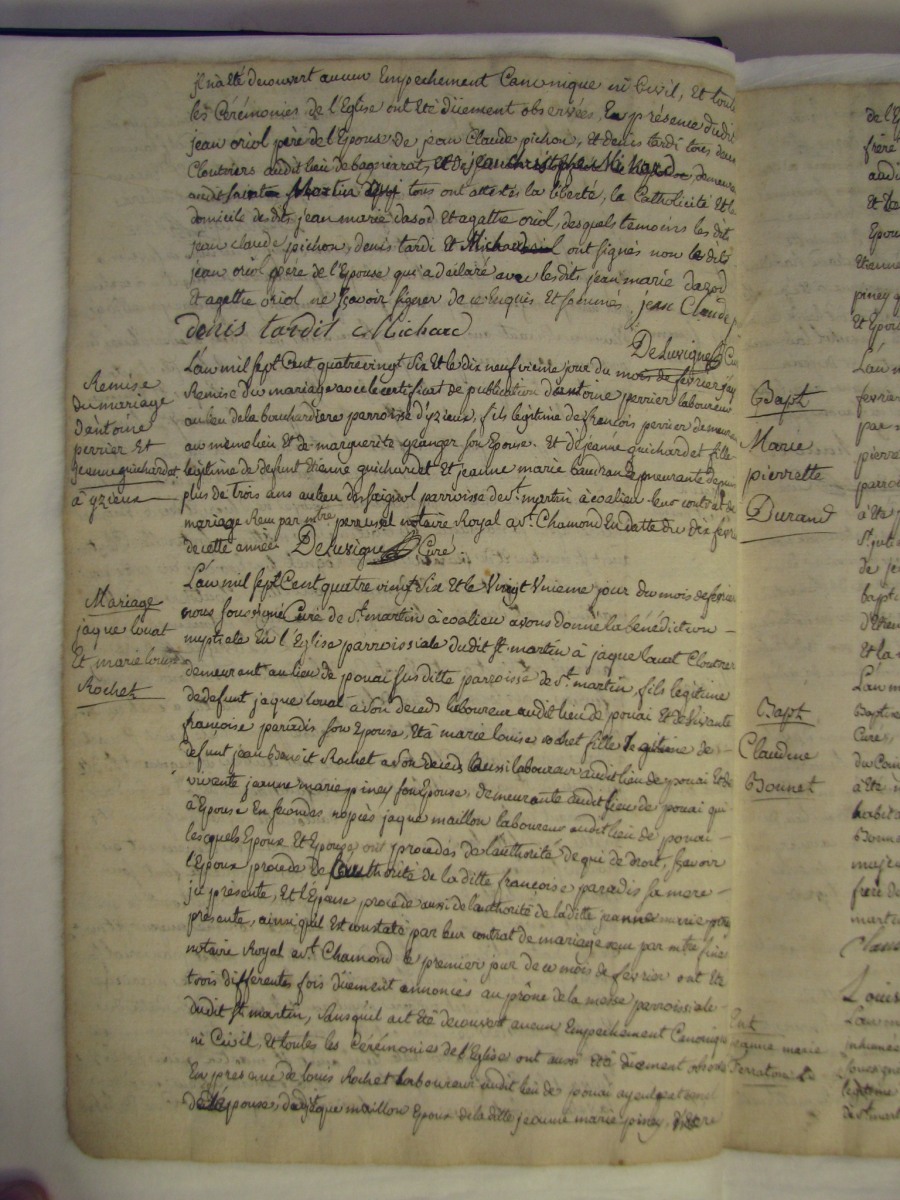 jl n'a Eté decouvert aucun Empechement Canonique ni Civil, Et toute
les Cérémonies de l'Eglise ont Eté düement observées, En présence dudit
jean oriol père de l'Epouse de jean Claude pichon, et denis tardi tous deux
Cloutiers audit lieu de
audit tous ont attesté la liberté, la Catholicité Et le
domicile desdits jean marie dasod Et agathe oriol, desquels temoins les dits
jean claude pichon, denis tardi Et Michard ont signés non ledit
jean oriol père de l'Epouse qui a déclaré avec lesdits jean marie dazod
Et agathe oriol ne sçavoir signer de ce Enquis Et sommés jean Claude
denis tardil Richard
DeLuvigne Cu
Remise
du mariage
d'antoine
perrier Et
jeanne guichardet
a yzieux
L'an mil sept Cent quatre vingt Six Et le dix neuvieme jour du mois de fevrier jay
Remise du mariage avec le certificat de publication d'antoine perrier laboureur
au lieu de la bouchardiere parroisse d'yzieux, fils legitime de françois perrier demeurant
au meme lieu Et de marguerite granger son Epouse. Et de jeanne guichardet fille
legitime de defunt Etienne guichardet Et jeanne marie demeurante depuis
plus de trois ans au lieu du parroisse de St. martin a coalieu. leur contrat de
mariage Reçu par mtre notaire Royal a St. Chamond En datte du dix fevr
de cette année DeLuvigne Curé.
Mariage
jaque louat
Et marie louise
Rochet
L'an mil sept Cent quatre vingt Six Et le Vingt Unieme jour du mois de fevrier
nous soussigné Curé de St. martin à coalieu avons donné la bénédiction
mystiele En l'Eglise parroissiale dudit St. martin à jaque louat Cloutier
demeurant au lieu de pouai susditte parroisse de St. martin, fils legitime
de defunt jaque louat a son deceds laboureur audit lieu de pouai Et de vivante
françoise paradis son Epouse, Et à marie louise rochet fille legitime de
defunt jean Benoit Rochet a son deceds aussi laboureur audit lieu de pouai Et de
vivante jeanne marie piney son Epouse, demeurante audit lieu de pouai qui
à Epousé En secondes nopces jaque maillon laboureur audit lieu de pouai
lesquels Epoux Et Epouse ont procedés de l'authorité de qui de droit, sçavoir
l'Epoux procede de l'authorité de la ditte françoise paradis sa mere
jci présente, Et l'Epouse procede aussi de l'authorité de la ditte jeanne marie
présente, ainsi quil Est constaté par leur contrat de mariage reçu par mtre
notaire Royal a St. Chamond le premier jour de ce mois de fevrier ont Eté
trois differentes fois düement annoncés au prône de la messe parroissiale
dudit St. martin, sans quil ait Eté decouvert aucun Empechement Canonique
ni Civil, Et toutes les Cerémonies de l'Eglise ont aussi Eté düement observé
En présence de louis Rochet laboureur audit lieu de pouai
de l'Epouse, dudit jaque maillon Epoux de la ditte jeanne marie piney,
Bapt
Marie
pierrette
Durand
Bapt
Claudine
Bonnet
Ent
jeanne marie
Ferraton
de l'E
frère
audi
Epou
Etienne
piney q
Et Epou
L'an
fevrier
par
pierre
parroi
à Eté
de je
Et la
L'an m
Curé
du
à Eté
habita
Bonn
majeu
frère de
marti
Claud
Louis
L'an m
inhumé
soussign
legitime
de St mart